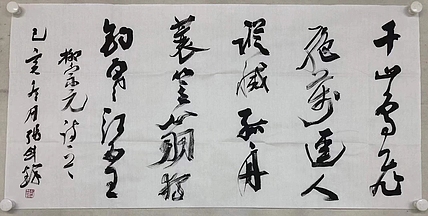 千山鸟飞
绝萬逕人
踪滅孤舟
蓑笠翁独
钓寒江雪
柳宗元诗一首
己亥冬月